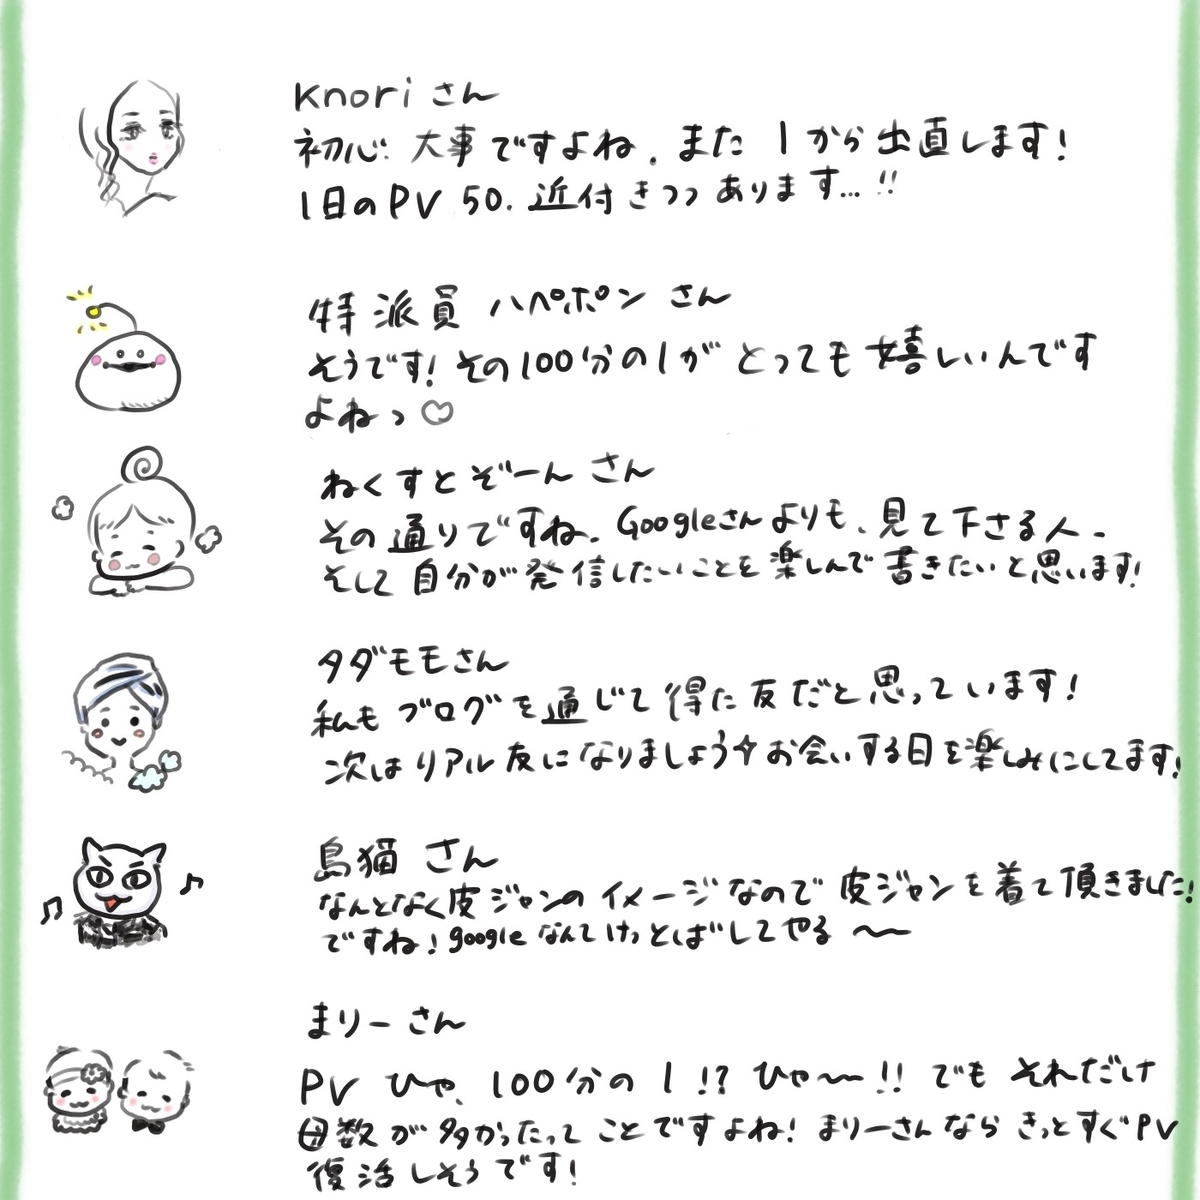 Knoriさん
初心.大事ですよね.また1から出直します!
1日のPV 50.近付きつつあります…!!
特派員ハペポンさん
そうです!その100分の1がとっても嬉しいんです
よねっ♡
ねくすとぞーんさん
その通りですね.Googleさんよりも、見て下さる人.
そして自分が発信したいことを楽しんで書きたいと思います!
タダモモさん
私もブログを通じて得た友だと思っています!
次はリアル友になりましょう☆お会いする日を楽しみにしてます!
鳥猫さん
なんとなく皮ジャンのイメージなので皮ジャンを着て頂きました!
ですね!googleなんてけっとばしてやる〜〜
まりーさん
PVひゃ、100分の1!?ひゃ〜〜!!でもそれだけ
母数が多かったってことですよね!まりーさんならきっとすぐPV
復活しそうです!